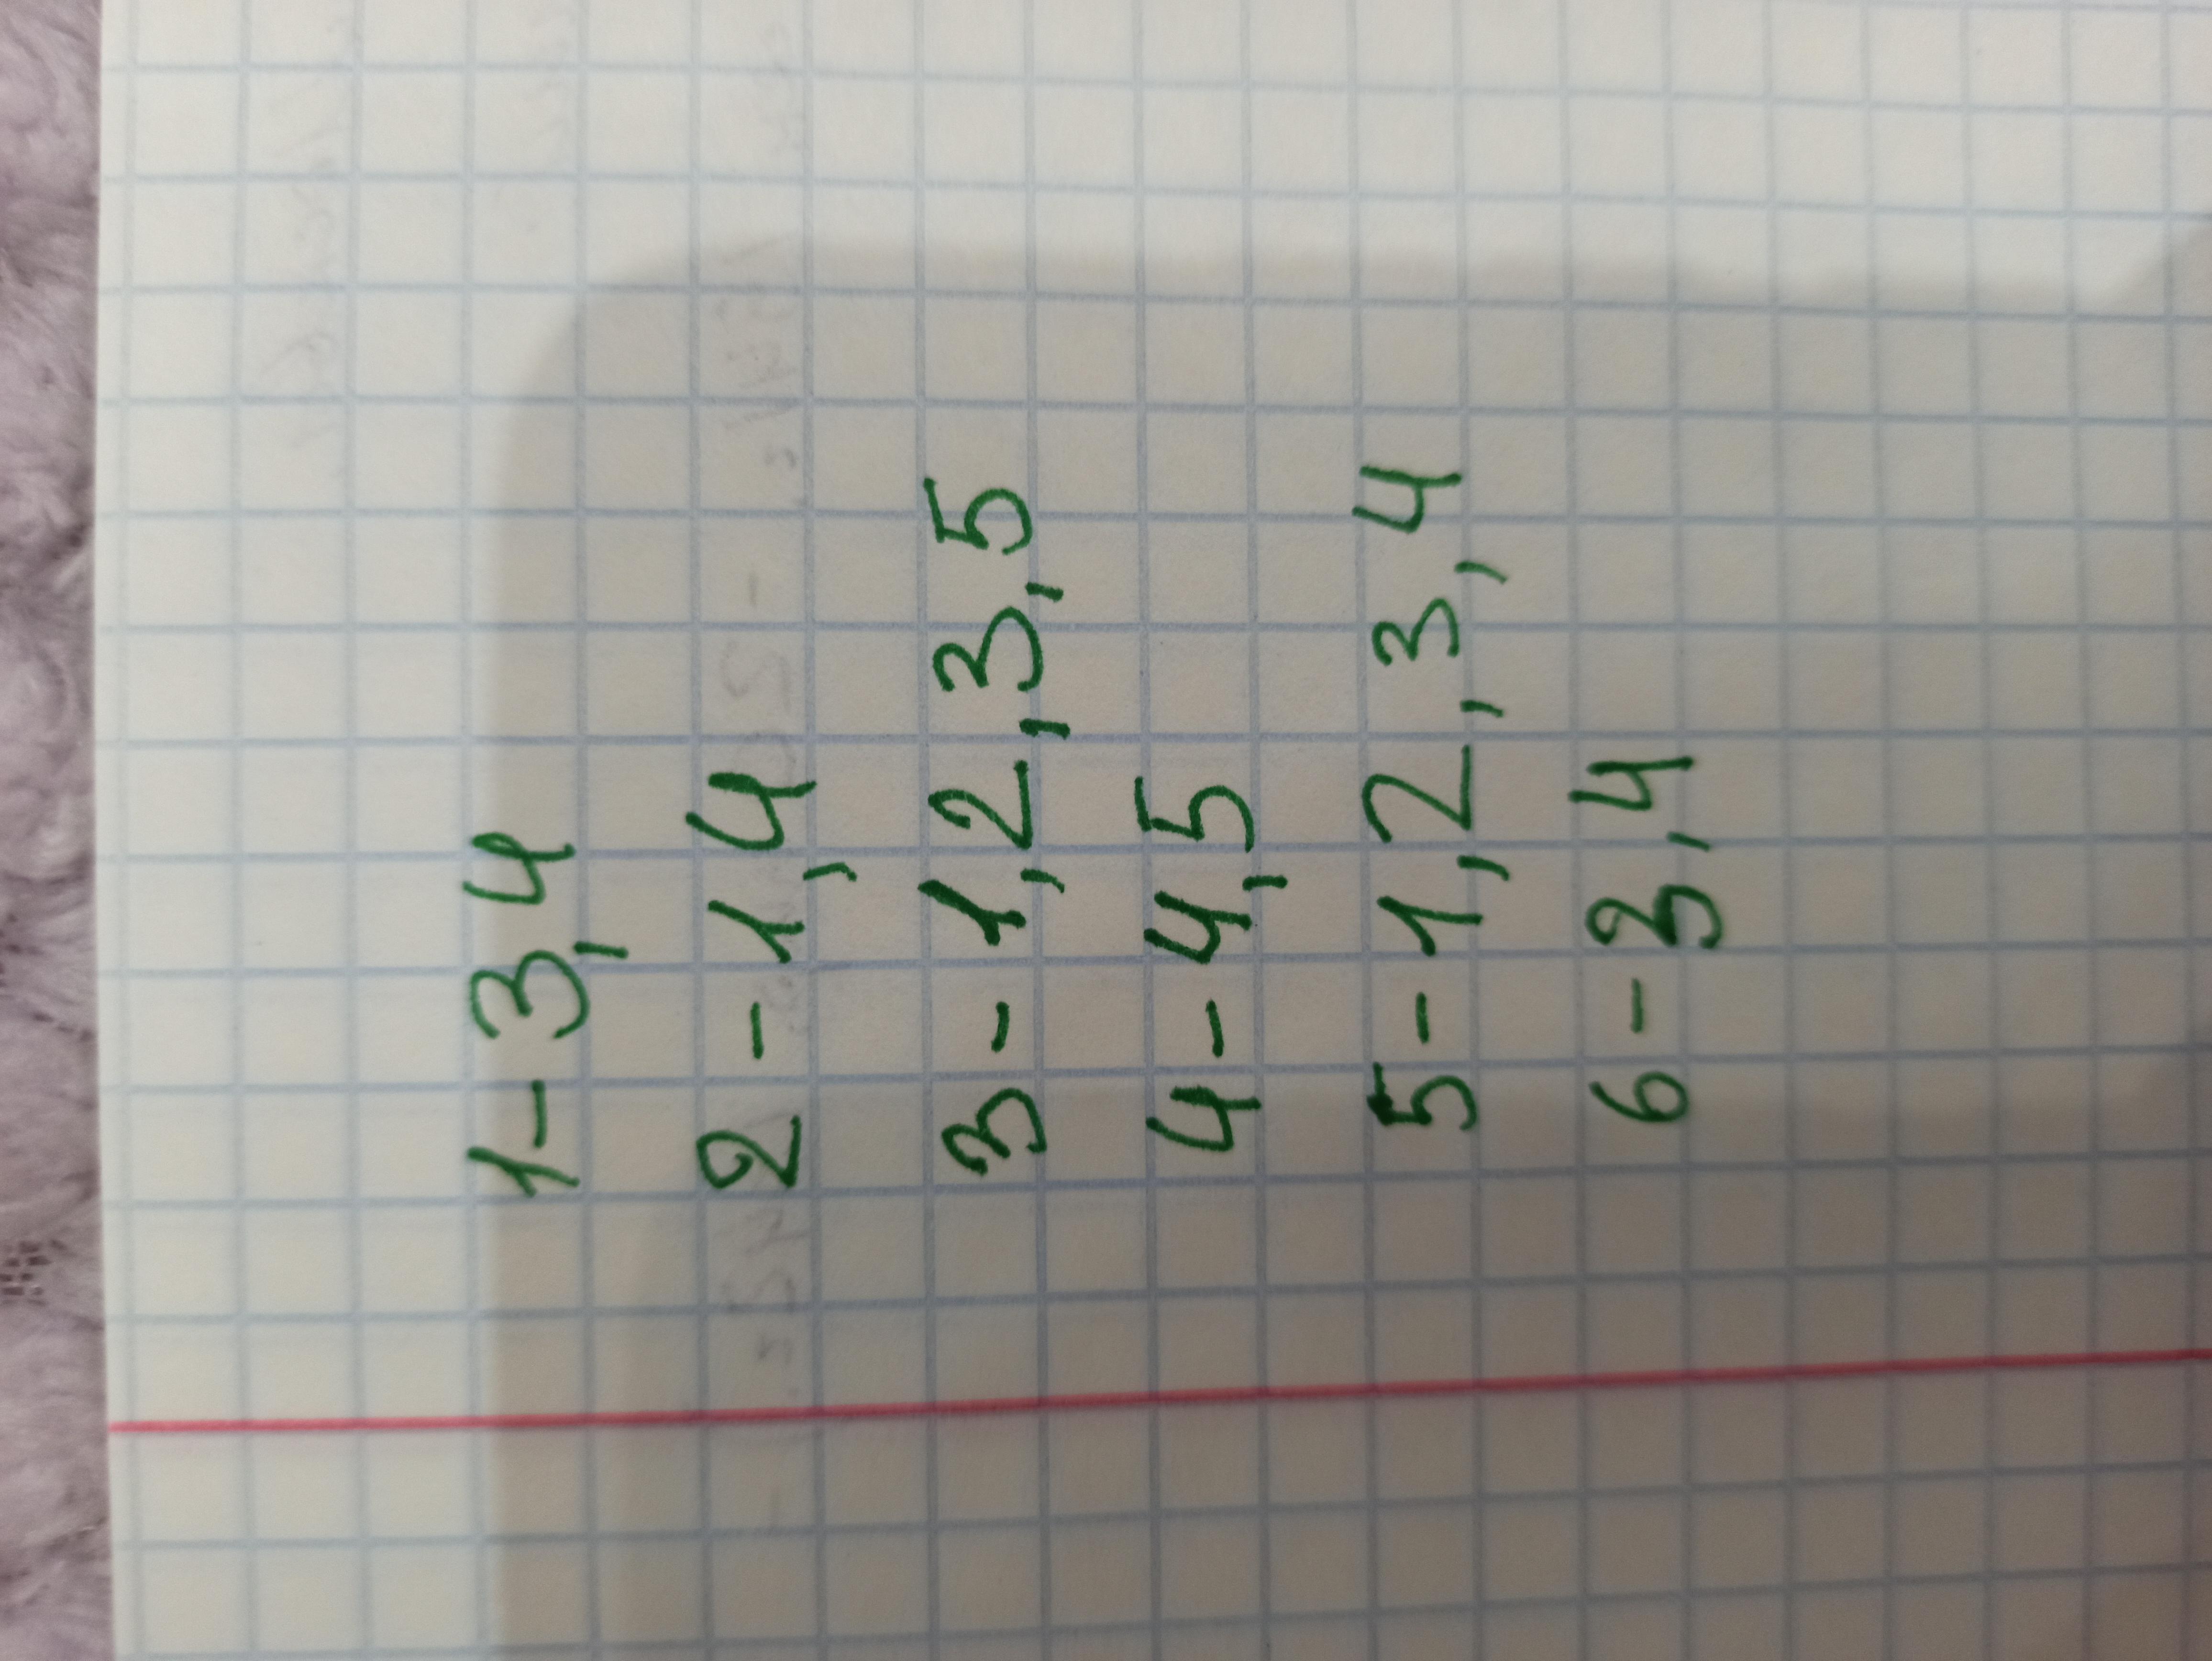 1 - 3,4
2 - 1,4
3 - 1,2,3,5
4 - 4,5
5 - 1,2,3,4
6 - 3,4